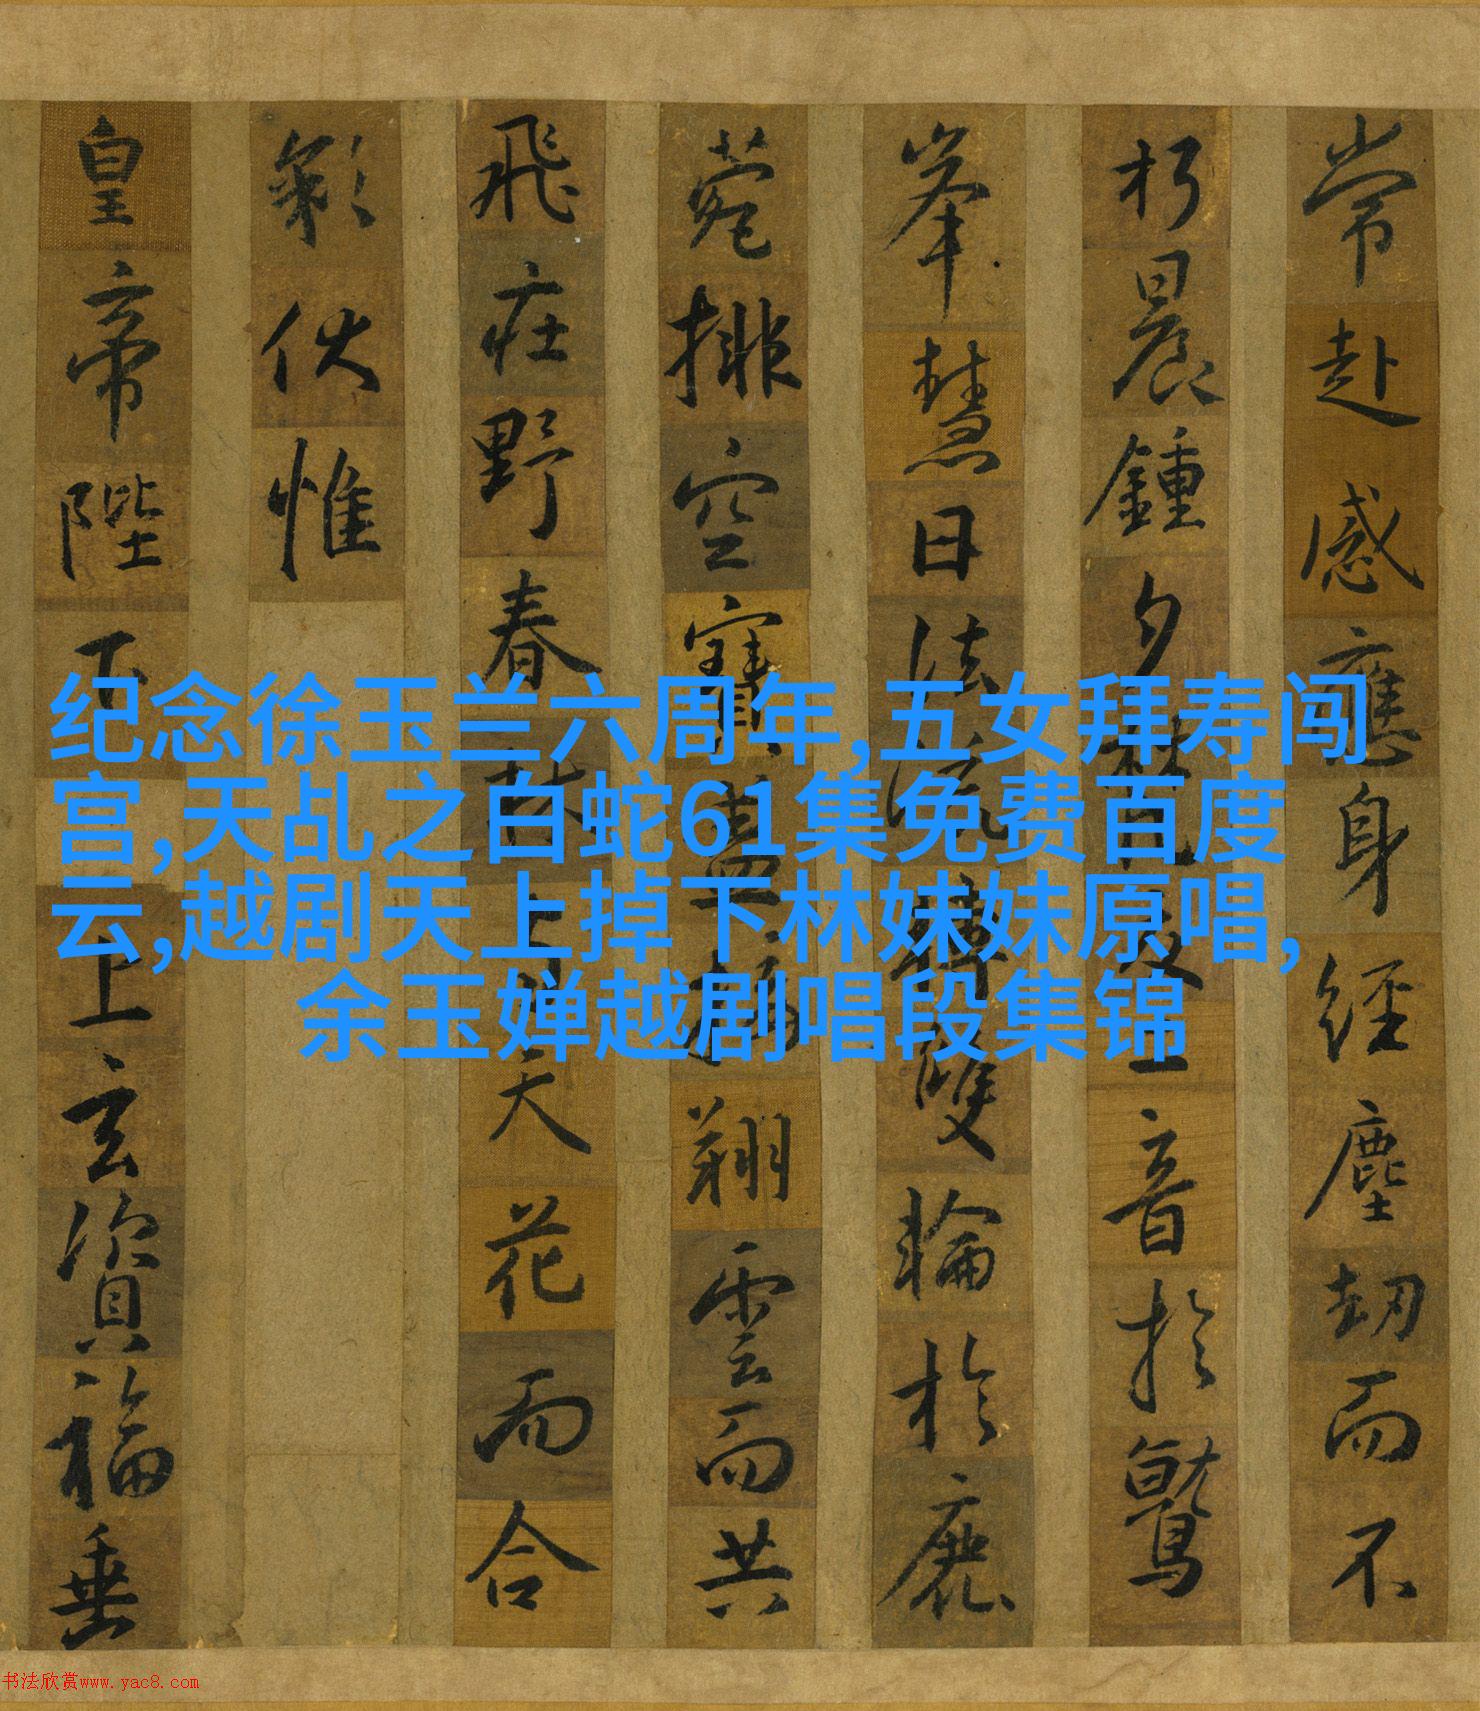 常赴感應身經塵劫而不
朽晨鍾夕梵交二音於鷲
峯慧日法流轉雙輪於鹿
菀排空寶蓋接翔雲而共
飛莊野春林與天花而合
彩伏惟
皇帝陛下上玄資福垂
纪念徐玉兰六周年,五女拜寿闯
宫,天乩之白蛇61集免费百度
云,越剧天上掉下林妹妹原唱,
余玉婵越剧唱段集锦
书法欣赏www.yac8.com